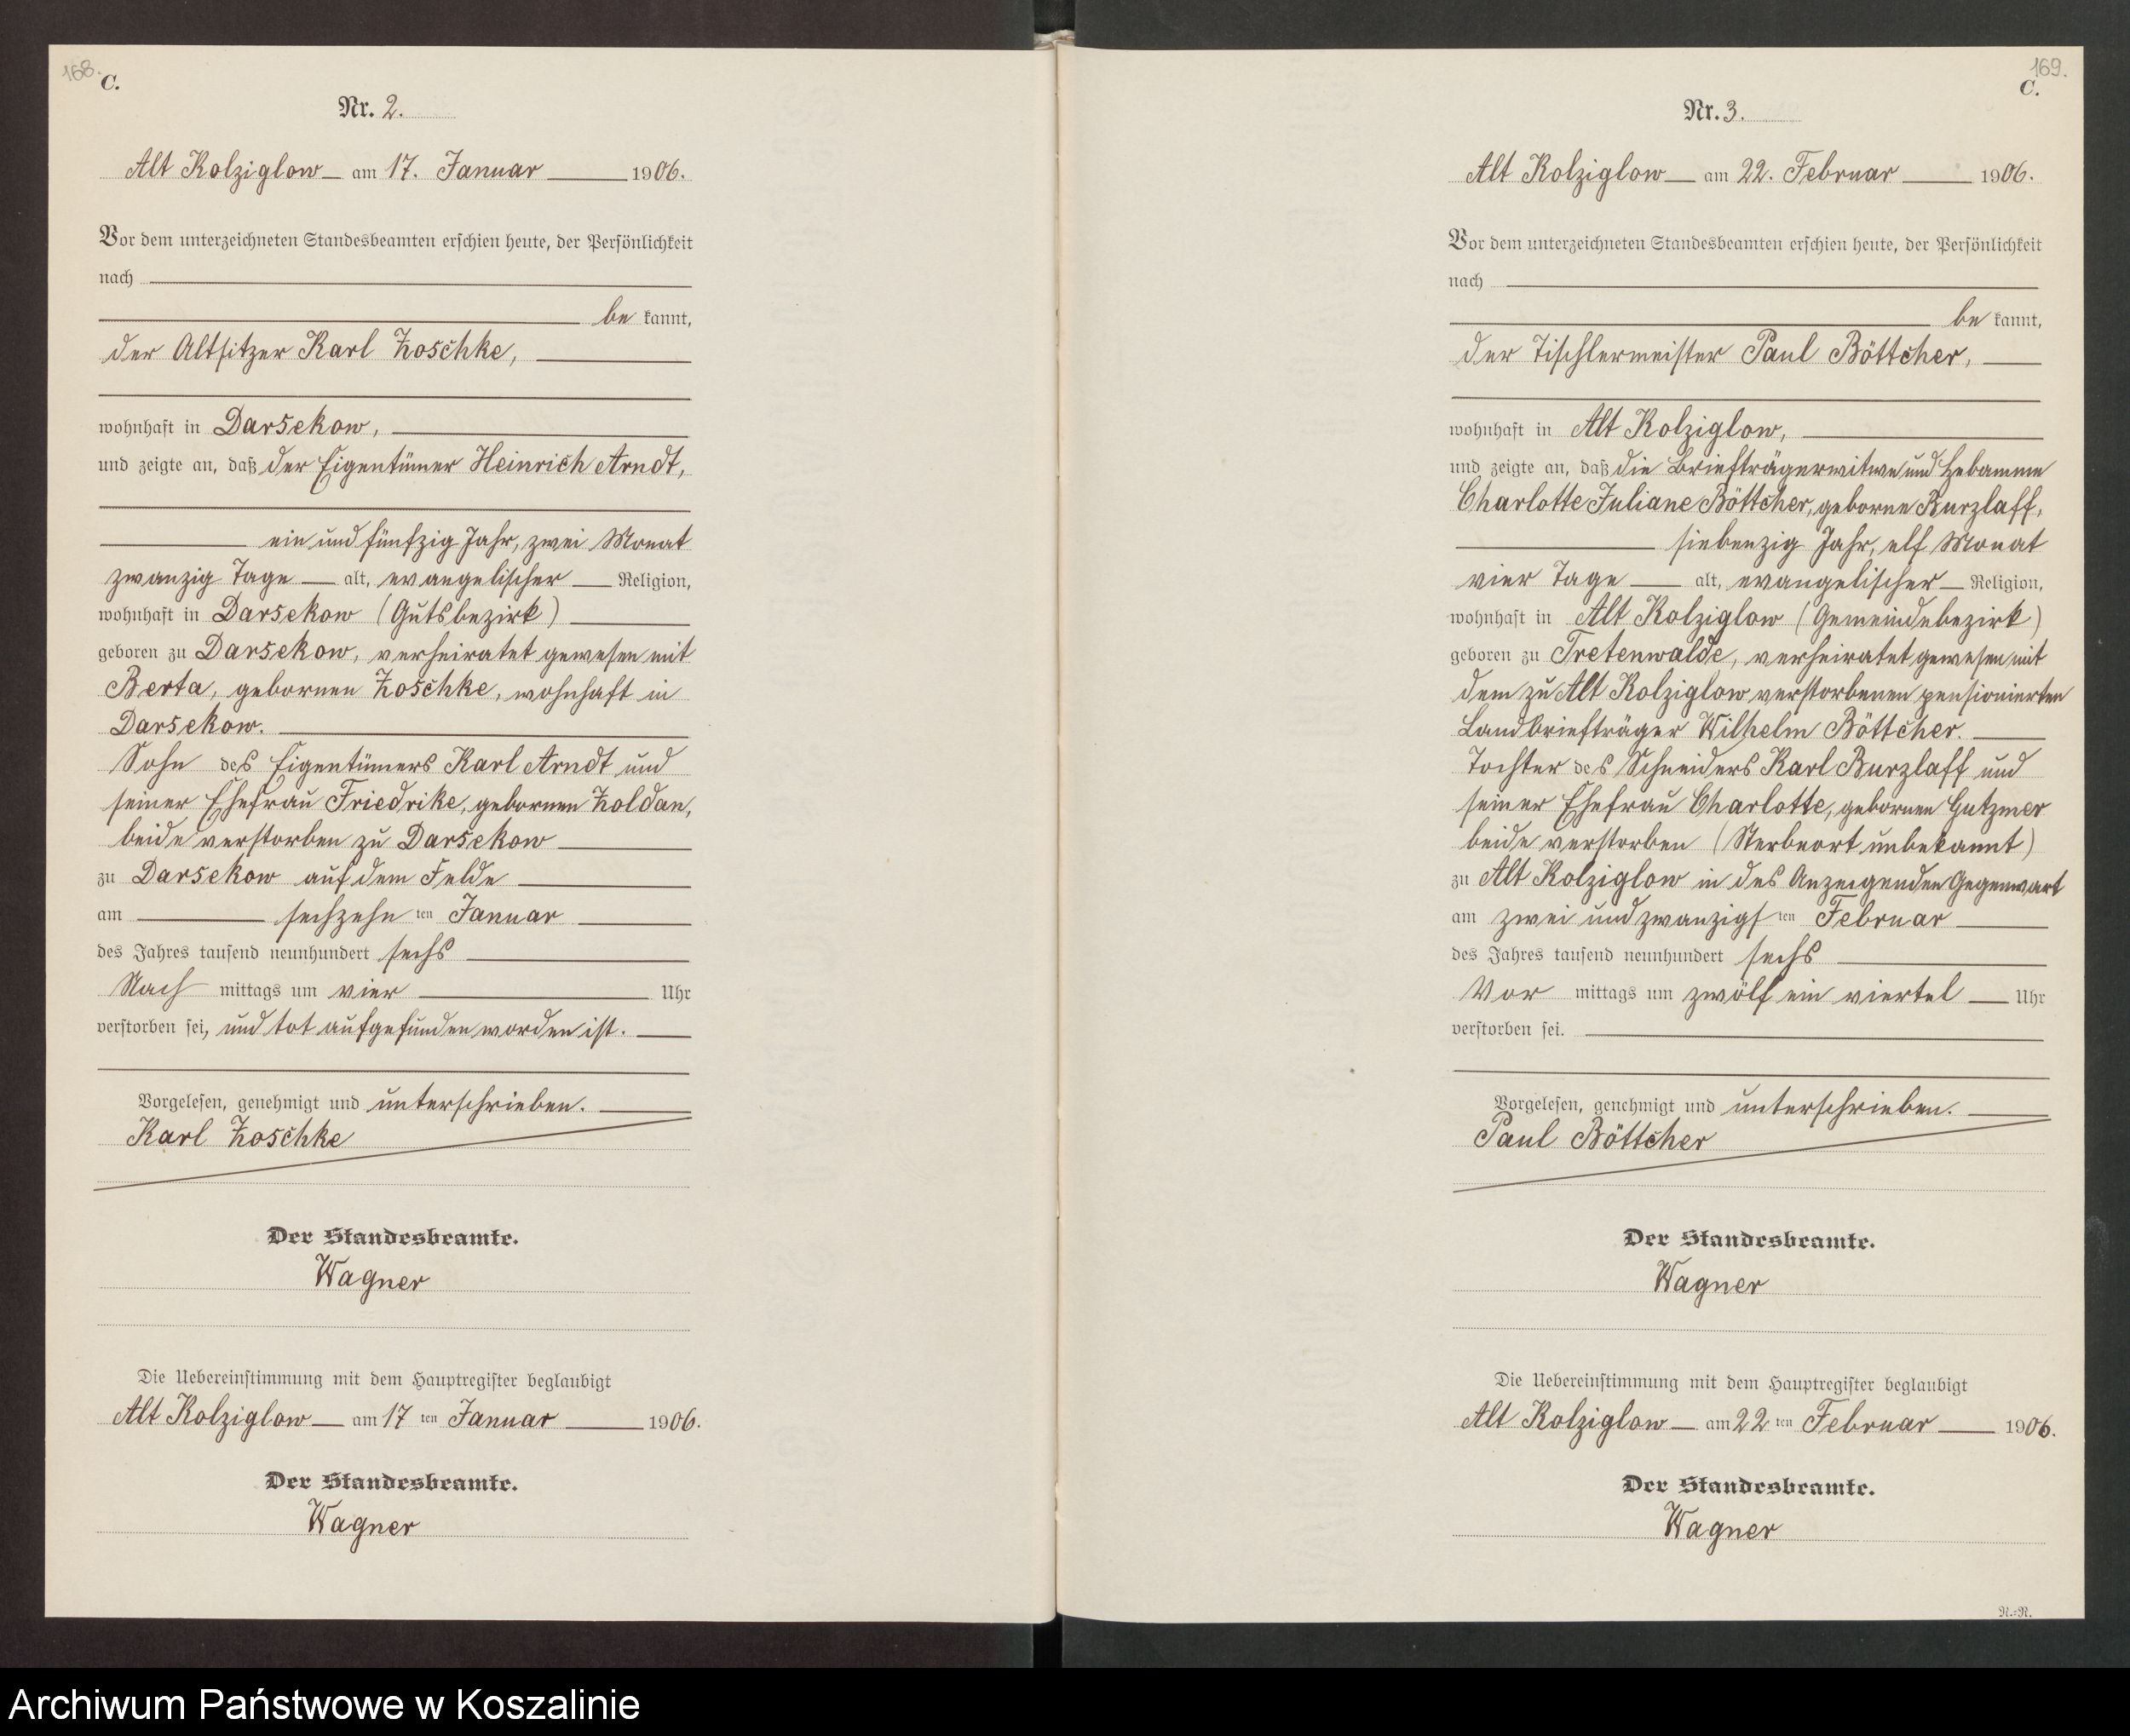 168.
C.
Nr. 2.
Alt Kolziglow am 17. Januar 1906.
Vor dem unterzeichneten Standesbeamten erschien heute, der Persönlichkeit
nach
be kannt,
der Altsitzer Karl Zoschke,
wohnhaft in Darsekow,
und zeigte an, daß der Eigentümer Heinrich Arndt,
ein und fünfzig Jahr, zwei Monat
zwanzig Tage alt, evangelischer Religion,
wohnhaft in Darsekow (Gutsbezirk)
geboren zu Darsekow, verheiratet gewesen mit
Berta, gebornen Zoschke, wohnhaft in
Darsekow.
Sohn des Eigentümers Karl Arndt und
seiner Ehefrau Friedrike, gebornen Zoldan,
beide verstorben zu Darsekow
zu Darsekow auf dem Felde
am sechzehn ten Januar
des Jahres tausend neunhundert sechs
Nach mittags um vier Uhr
verstorben sei, und tot aufgefunden worden ist.
Vorgelesen, genehmigt und unterschrieben.
Karl Zoschke
Der Standesbeamte.
Wagner
Die Uebereinstimmung mit dem Hauptregister beglaubigt
Alt Kolziglow am 17 ten Januar 1906.
Der Standesbeamte.
Wagner
169.
C.
Nr. 3.
Alt Kolziglow am 22. Februar 1906.
Vor dem unterzeichneten Standesbeamten erschien heute, der Persönlichkeit
nach
be kannt,
der Tischlermeister Paul Böttcher,
wohnhaft in Alt Kolziglow,
und zeigte an, daß die Briefträgerwitwe und Hebamme
Charlotte Juliane Böttcher, geborne Burzlaff,
siebenzig Jahr, elf Monat
vier Tage alt, evangelischer Religion,
wohnhaft in Alt Kolziglow (Gemeindebezirk)
geboren zu Tretenwalde, verheiratet gewesen mit
dem zu Alt Kolziglow verstorbenen pensionierten
Landbriefträger Wilhelm Böttcher.
Tochter des Schneiders Karl Burzlaff und
seiner Ehefrau Charlotte, gebornen Gutzmer
beide verstorben (Sterbeort unbekannt)
zu Alt Kolziglow in des Anzeigenden Gegenwart
am zwei und zwanzigs ten Februar
des Jahres tausend neunhundert sechs
Vor mittags um zwölf ein viertel Uhr
verstorben sei.
Vorgelesen, genehmigt und unterschrieben.
Paul Böttcher
Der Standesbeamte.
Wagner
Die Uebereinstimmung mit dem Hauptregister beglaubigt
Alt Kolziglow am 22 ten Februar 1906.
Der Standesbeamte.
Wagner
R.-R.
Archiwum Państwowe w Koszalinie